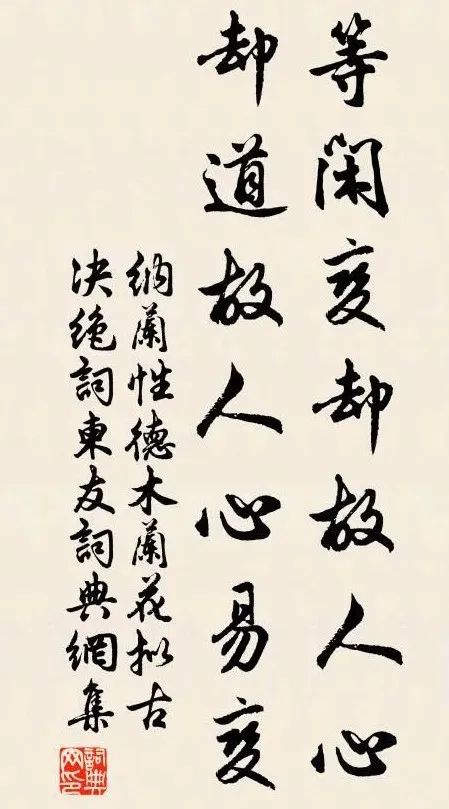 等闲变却故人心
却道故人心易变
纳兰性德木兰花拟古
决绝词東友詞典網集
詞典网印